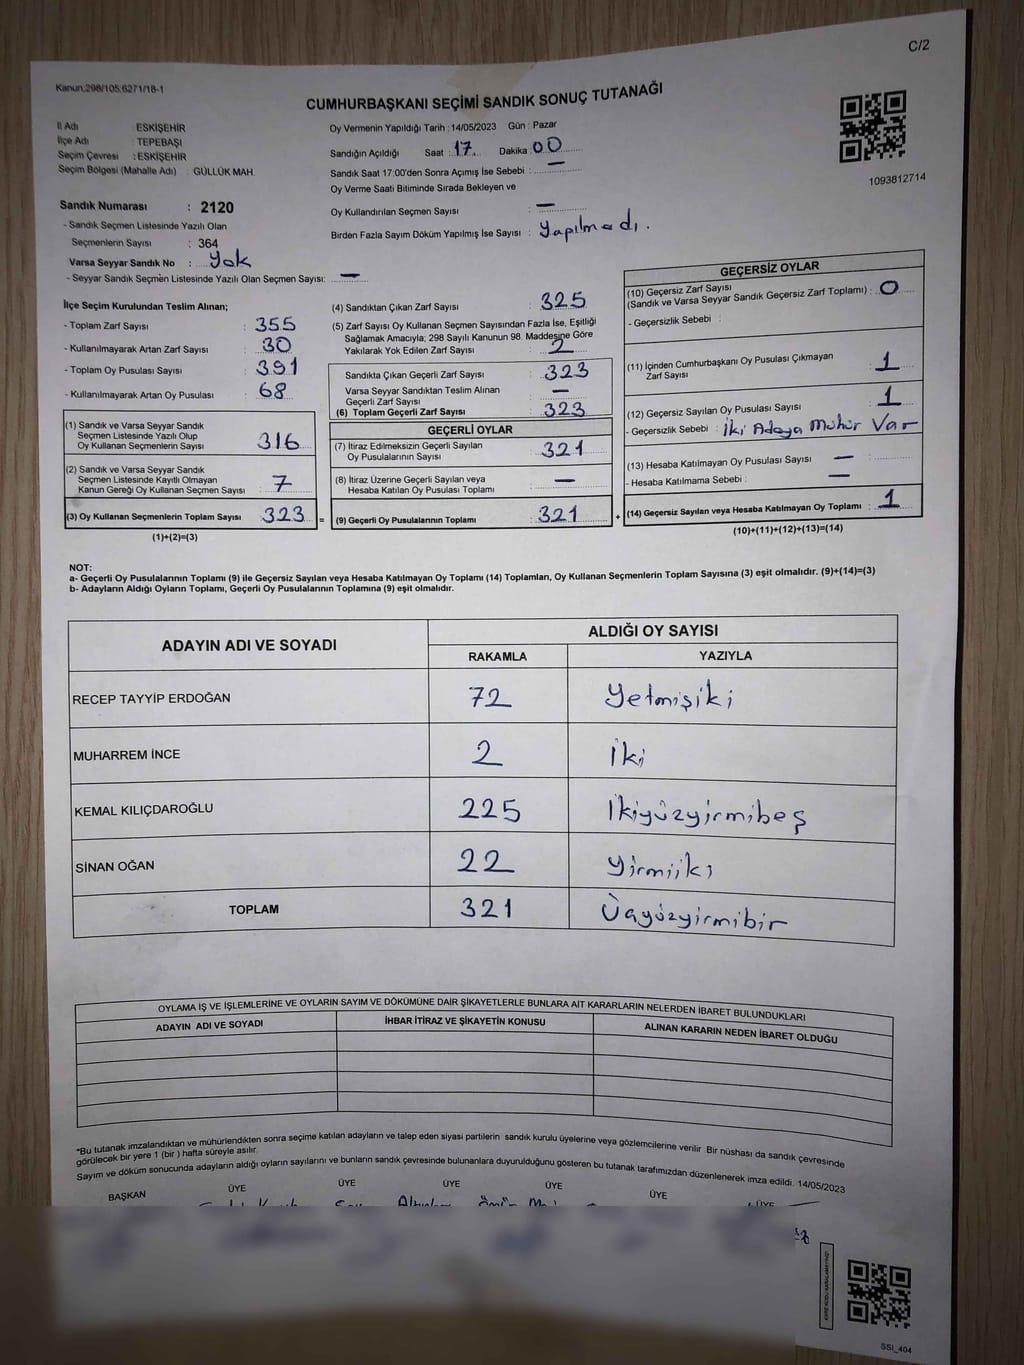 C/2
Kanun;298/105;6271/18-1
CUMHURBAŞKANI SEÇİMİ SANDIK SONUÇ TUTANAĞI
İl Adı : ESKİŞEHİR
İlçe Adı : TEPEBAŞI
Seçim Çevresi : ESKİŞEHİR
Seçim Bölgesi (Mahalle Adı) : GÜLLÜK MAH.
Sandık Numarası : 2120
- Sandık Seçmen Listesinde Yazılı Olan
Seçmenlerin Sayısı : 364
Varsa Seyyar Sandık No : Yok
- Seyyar Sandık Seçmen Listesinde Yazılı Olan Seçmen Sayısı: —
Oy Vermenin Yapıldığı Tarih : 14/05/2023 Gün : Pazar
Sandığın Açıldığı Saat : 17 Dakika : 00
Sandık Saat 17:00'den Sonra Açımış İse Sebebi : —
Oy Verme Saati Bitiminde Sırada Bekleyen ve
Oy Kullandırılan Seçmen Sayısı : —
Birden Fazla Sayım Döküm Yapılmış İse Sayısı : Yapılmadı.
1093812714
İlçe Seçim Kurulundan Teslim Alınan;
- Toplam Zarf Sayısı : 355
- Kullanılmayarak Artan Zarf Sayısı : 30
- Toplam Oy Pusulası Sayısı : 391
- Kullanılmayarak Artan Oy Pusulası : 68
(1) Sandık ve Varsa Seyyar Sandık
Seçmen Listesinde Yazılı Olup
Oy Kullanan Seçmenlerin Sayısı : 316
(2) Sandık ve Varsa Seyyar Sandık
Seçmen Listesinde Kayıtlı Olmayan
Kanun Gereği Oy Kullanan Seçmen Sayısı : 7
(3) Oy Kullanan Seçmenlerin Toplam Sayısı : 323 =
(1)+(2)=(3)
(4) Sandıktan Çıkan Zarf Sayısı : 325
(5) Zarf Sayısı Oy Kullanan Seçmen Sayısından Fazla İse, Eşitliği
Sağlamak Amacıyla; 298 Sayılı Kanunun 98. Maddesine Göre
Yakılarak Yok Edilen Zarf Sayısı : 2
Sandıkta Çıkan Geçerli Zarf Sayısı : 323
Varsa Seyyar Sandıktan Teslim Alınan
Geçerli Zarf Sayısı : —
(6) Toplam Geçerli Zarf Sayısı : 323
GEÇERLİ OYLAR
(7) İtiraz Edilmeksizin Geçerli Sayılan
Oy Pusulalarının Sayısı : 321
(8) İtiraz Üzerine Geçerli Sayılan veya
Hesaba Katılan Oy Pusulası Toplamı : —
(9) Geçerli Oy Pusulalarının Toplamı : 321 +
GEÇERSİZ OYLAR
(10) Geçersiz Zarf Sayısı
(Sandık ve Varsa Seyyar Sandık Geçersiz Zarf Toplamı) : 0
- Geçersizlik Sebebi :
(11) İçinden Cumhurbaşkanı Oy Pusulası Çıkmayan
Zarf Sayısı : 1
(12) Geçersiz Sayılan Oy Pusulası Sayısı : 1
- Geçersizlik Sebebi : İki Adaya Mühür Var
(13) Hesaba Katılmayan Oy Pusulası Sayısı : —
- Hesaba Katılmama Sebebi : —
(14) Geçersiz Sayılan veya Hesaba Katılmayan Oy Toplamı : 1
(10)+(11)+(12)+(13)=(14)
NOT:
a- Geçerli Oy Pusulalarının Toplamı (9) ile Geçersiz Sayılan veya Hesaba Katılmayan Oy Toplamı (14) Toplamları, Oy Kullanan Seçmenlerin Toplam Sayısına (3) eşit olmalıdır. (9)+(14)=(3)
b- Adayların Aldığı Oyların Toplamı, Geçerli Oy Pusulalarının Toplamına (9) eşit olmalıdır.
ADAYIN ADI VE SOYADI ALDIĞI OY SAYISI
RAKAMLA YAZIYLA
RECEP TAYYİP ERDOĞAN 72 Yetmişiki
MUHARREM İNCE 2 İki
KEMAL KILIÇDAROĞLU 225 İkiyüzyirmibeş
SİNAN OĞAN 22 Yirmiiki
TOPLAM 321 Üçyüzyirmibir
OYLAMA İŞ VE İŞLEMLERİNE VE OYLARIN SAYIM VE DÖKÜMÜNE DAİR ŞİKAYETLERLE BUNLARA AİT KARARLARIN NELERDEN İBARET BULUNDUKLARI
ADAYIN ADI VE SOYADI İHBAR İTİRAZ VE ŞİKAYETİN KONUSU ALINAN KARARIN NEDEN İBARET OLDUĞU
*Bu tutanak imzalandıktan ve mühürlendikten sonra seçime katılan adayların ve talep eden siyasi partilerin sandık kurulu üyelerine veya gözlemcilerine verilir Bir nüshası da sandık çevresinde
görülecek bir yere 1 (bir ) hafta süreyle asılır.
Sayım ve döküm sonucunda adayların aldığı oyların sayılarını ve bunların sandık çevresinde bulunanlara duyurulduğunu gösteren bu tutanak tarafımızdan düzenlenerek imza edildi. 14/05/2023
BAŞKAN ÜYE ÜYE ÜYE ÜYE ÜYE ÜYE
SSI_404